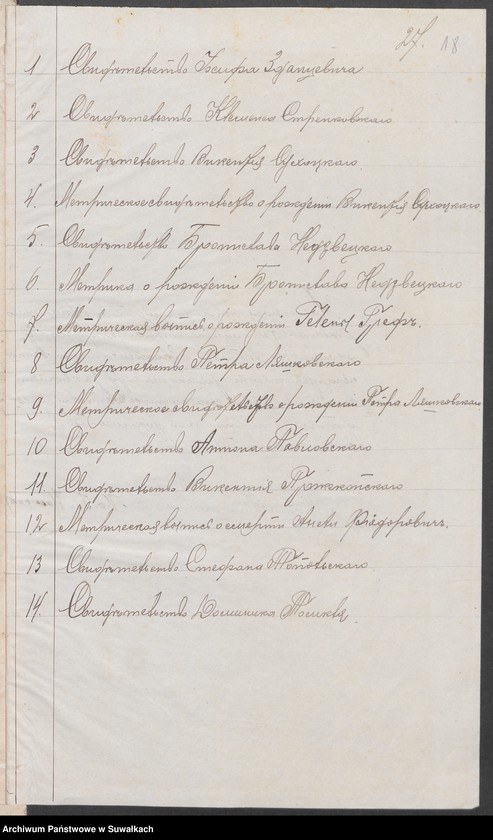 27. 18
1 Свидѣтельство Іосифа Зданцевича
2 Свидѣтельство Стренковскаго
3 Свидѣтельство Викентія Сухоцкаго
4. Метрическое свидѣтельство о рожденіи Викентія Сухоцкаго
5. Свидѣтельство Бронислава Недзвецкаго
6. Метрика о рожденіи Бронислава Недзвецкаго
7. Метрическая выпись о рожденіи Гелены Грефъ.
8 Свидѣтельство Петра Ляшковскаго
9. Метрическое свидѣтельство о рожденіи Петра Ляшковскаго
10 Свидѣтельство Антона Павловскаго
11 Свидѣтельство Викентія
12 Метрическая выпись о смерти Ѳіодоровичъ.
13 Свидѣтельство Стефана
14. Свидѣтельство Доминика
Archiwum Państwowe w Suwałkach